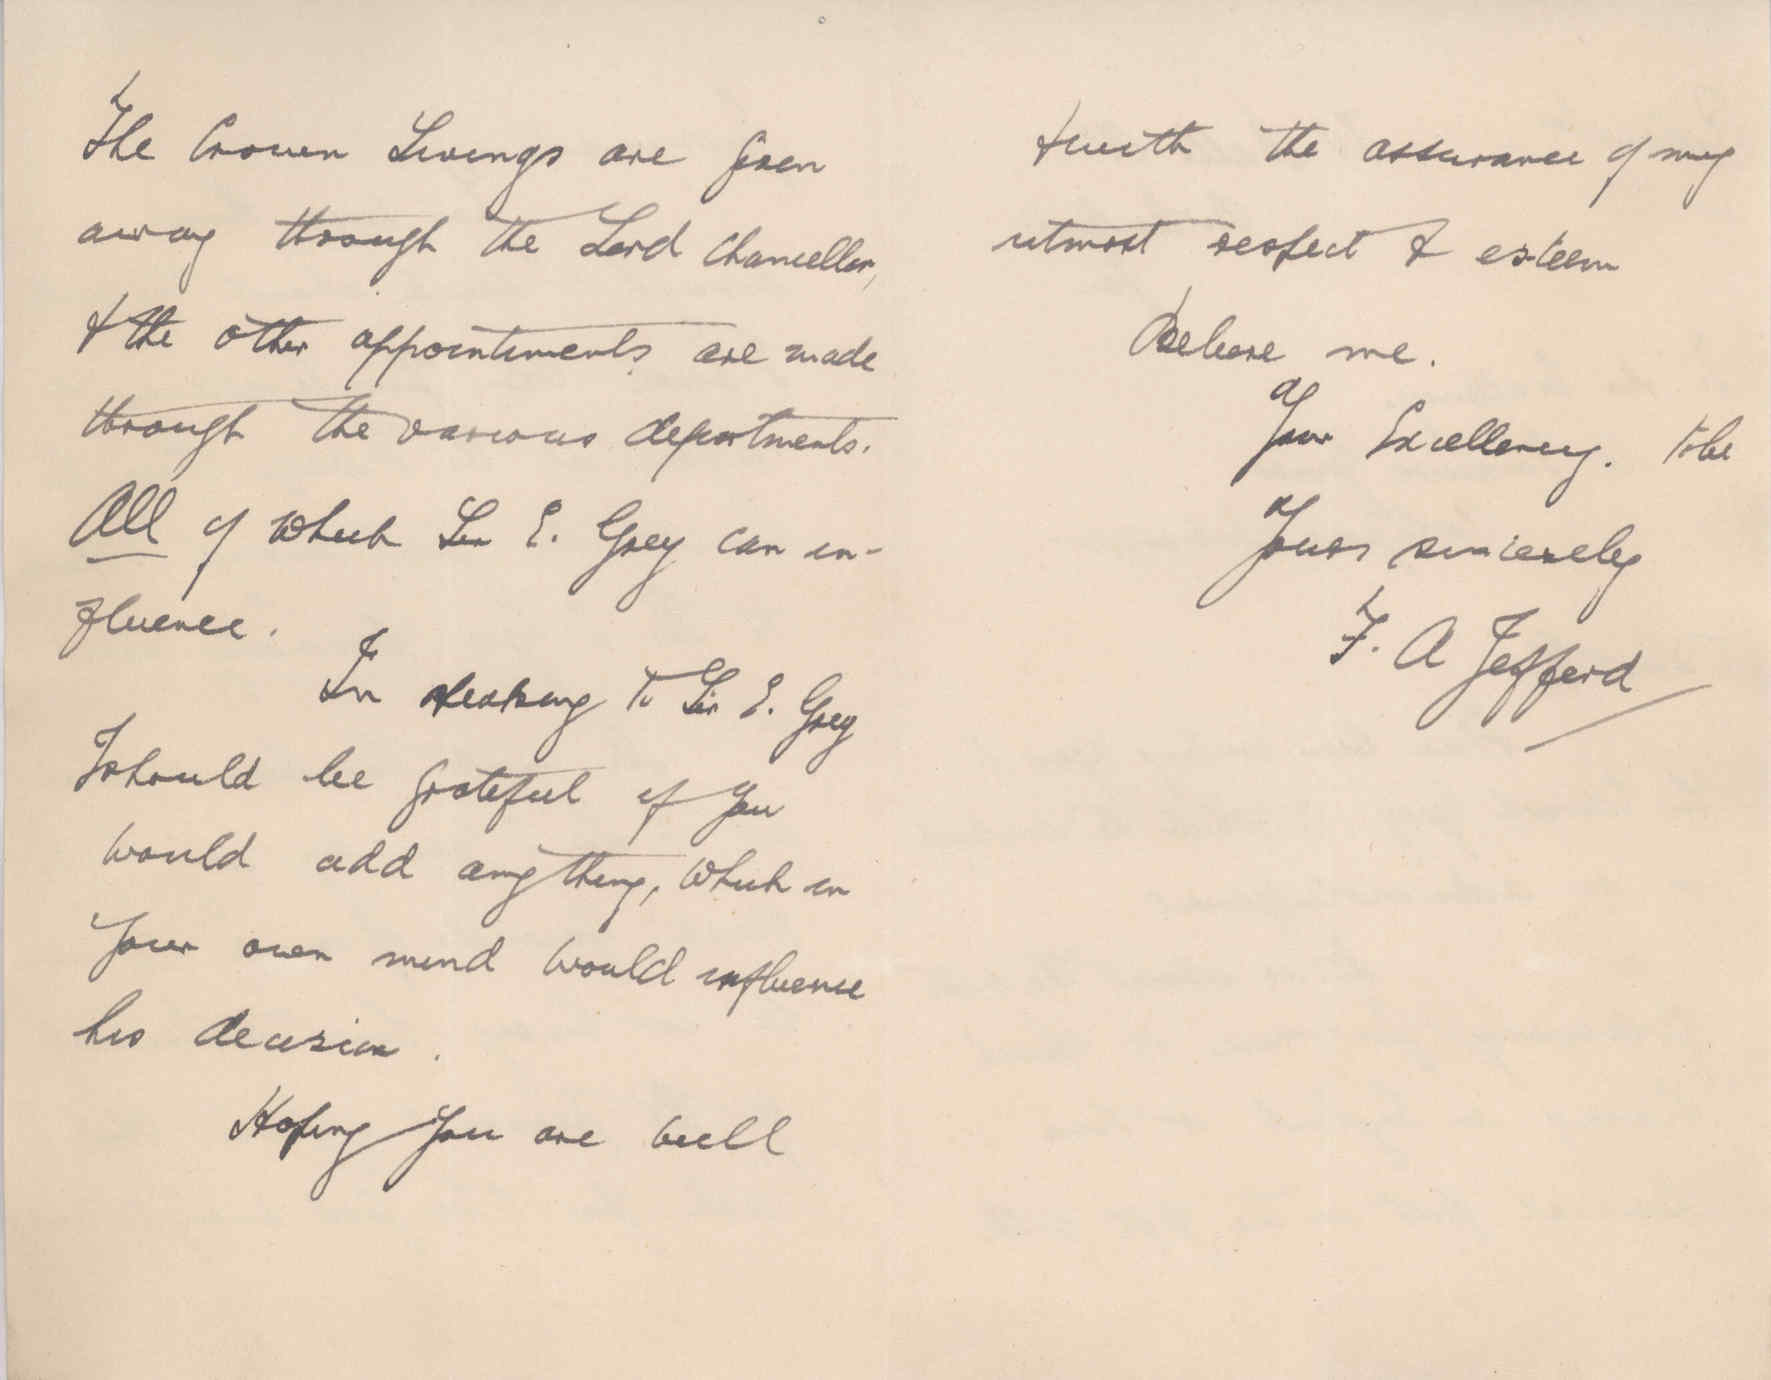 The Crown Livings are given
away through the Lord Chancellor,
& the other appointments are made
through the various departments.
All of which Sir E. Grey can in-
fluence.
In speaking to Sir E. Grey
I should be grateful if you
would add anything, which in
your own mind would influence
his decision.
Hoping you are well
& with the assurance of my
utmost respect & esteem
Believe me.
Your Excellency. to be
Yours sincerely
F. A Jefferd